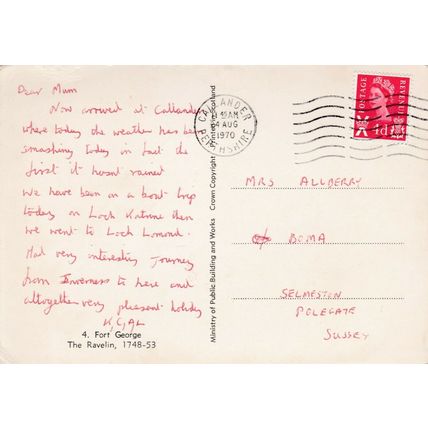 Dear Mum
Now arrived at Callander
where today the weather has been
smashing today in fact the
first it hasnt rained
We have been on a boat trip
today on Loch Katrine then
we went to Loch Lomond.
Had very interesting journey
from Inverness to here and
altogether very pleasant holiday
4. Fort George
The Ravelin, 1748-53
Ministry of Public Building and Works Crown Copyright Printed in Scotland
CALLANDER
AM
4 AUG
1970
PERTHSHIRE
POSTAGE
REVENUE
MRS ALLBERRY
BOMA
SELMESTON
POLEGATE
SUSSEY